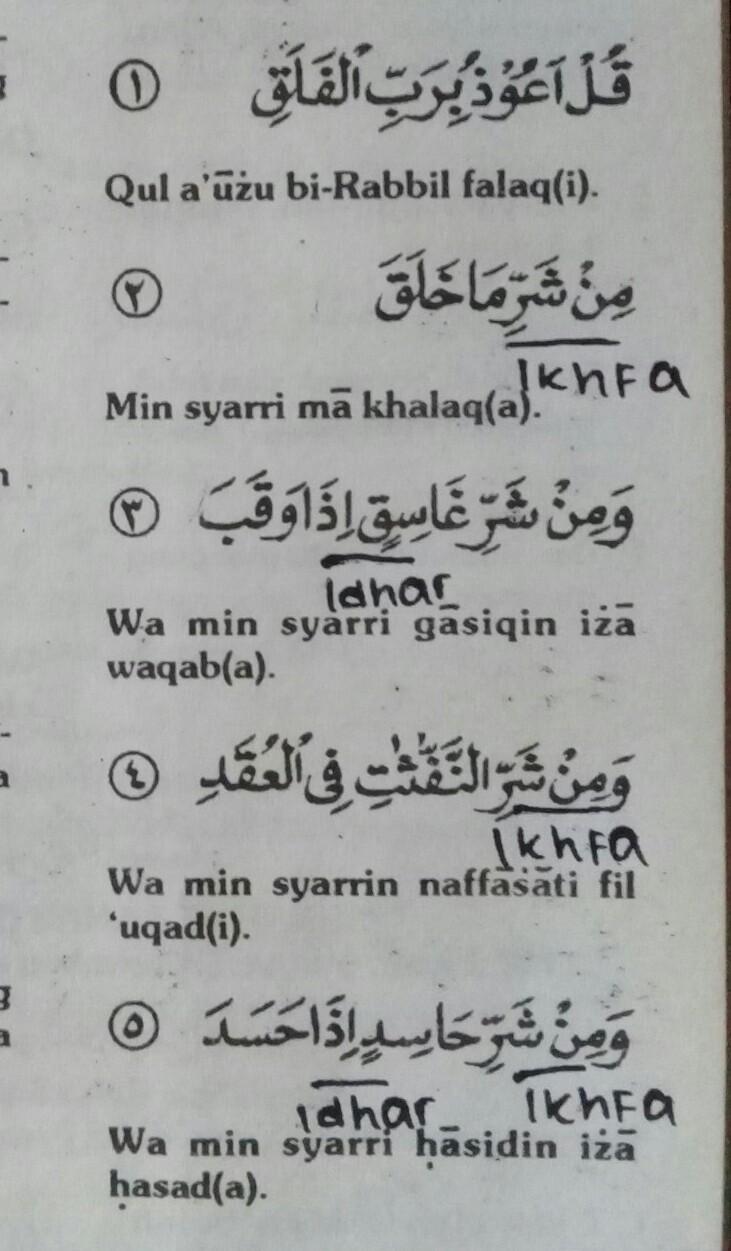 قُلْ اَعُوْذُ بِرَبِّ الْفَلَقِ ①
Qul a'ūżu bi-Rabbil falaq(i).
مِنْ شَرِّ مَا خَلَقَ ②
Ikhfa
Min syarri mā khalaq(a).
وَمِنْ شَرِّ غَاسِقٍ اِذَا وَقَبَ ③
Idhar
Wa min syarri gāsiqin iżā
waqab(a).
وَمِنْ شَرِّ النَّفّٰثٰتِ فِى الْعُقَدِ ④
Ikhfa
Wa min syarrin naffāṡāti fil
‘uqad(i).
وَمِنْ شَرِّ حَاسِدٍ اِذَا حَسَدَ ⑤
Idhar Ikhfa
Wa min syarri ḥāsidin iżā
ḥasad(a).